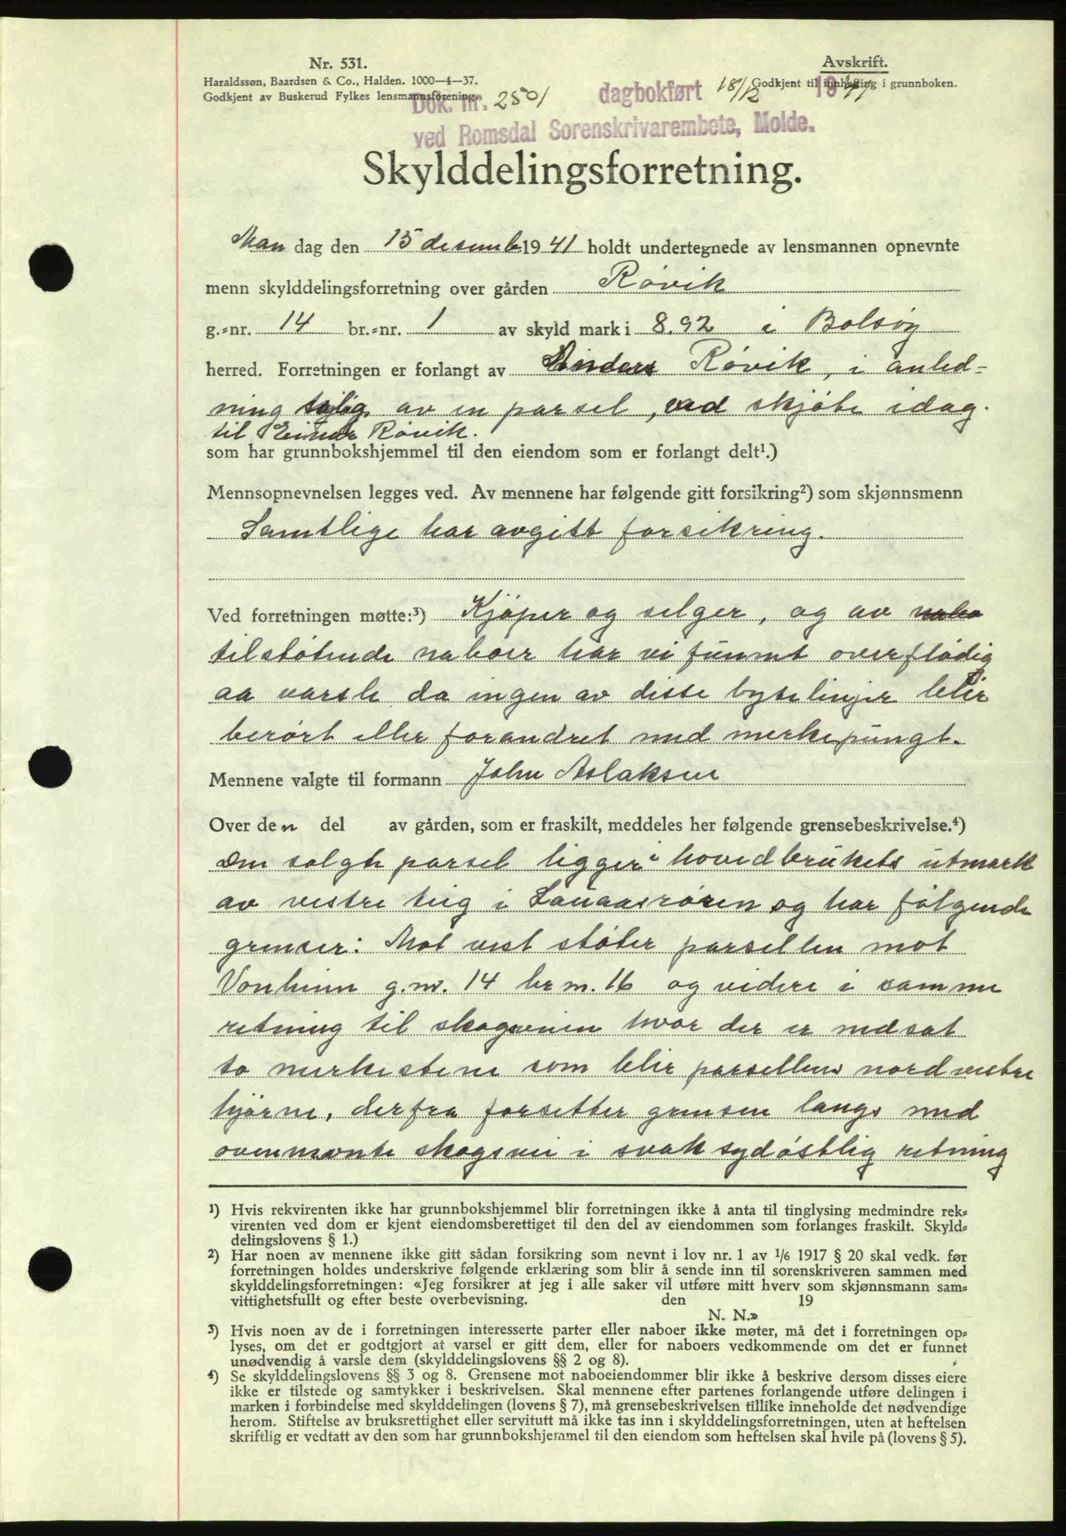 Nr. 531.
Haraldssøn, Baardsen & Co., Halden. 1000—4—37.
Godkjent av Buskerud Fylkes lensmannsforening.
Avskrift.
Godkjent til innhefting i grunnboken.
Dok. nr. 2501 dagbokført 18/12 1941
ved Romsdal Sorenskrivarembete, Molde.
Skylddelingsforretning.
Man dag den 15 desemb. 1941 holdt undertegnede av lensmannen opnevnte
menn skylddelingsforretning over gården Røvik
g.=nr. 14 br.=nr. 1 av skyld mark i 8.92 i Bolsøy
herred. Forretningen er forlangt av Anders Røvik, i anled=
ning salg av en parsel, ved skjøte idag.
til Einar Røvik.
som har grunnbokshjemmel til den eiendom som er forlangt delt¹.)
Mennsopnevnelsen legges ved. Av mennene har følgende gitt forsikring²) som skjønnsmenn
Samtlige har avgitt forsikring.
Ved forretningen møtte:³) Kjøper og selger, og av nabo
tilstøtende naboer har vi funnt overflødig
aa varsle da ingen av disse bytelinjer blir
berørt eller forandret med merkepungt.
Mennene valgte til formann John Aslaksen
Over den del av gården, som er fraskilt, meddeles her følgende grensebeskrivelse.⁴)
Den solgte parsel ligger i hovedbrukets utmark
av vestre teig i Lauaasrøren og har følgende
grenser: Mot vest støter parsellen mot
Vonheim g.nr. 14 br nr. 16 og videre i samme
retning til skogsveien hvor der er nedsat
to merkestene som blir parsellens nordvestre
hjørne, derfra forsetter grensen langs med
ovennevnte skogsvei i svak sydøstlig retning
¹) Hvis rekvirenten ikke har grunnbokshjemmel blir forretningen ikke å anta til tinglysing medmindre rek=
virenten ved dom er kjent eiendomsberettiget til den del av eiendommen som forlanges fraskilt. Skyld=
delingslovens § 1.)
²) Har noen av mennene ikke gitt sådan forsikring som nevnt i lov nr. 1 av 1/6 1917 § 20 skal vedk. før
forretningen holdes underskrive følgende erklæring som blir å sende inn til sorenskriveren sammen med
skylddelingsforretningen: «Jeg forsikrer at jeg i alle saker vil utføre mitt hverv som skjønnsmann sam=
vittighetsfullt og efter beste overbevisning. den 19
N. N.»
³) Hvis noen av de i forretningen interesserte parter eller naboer ikke møter, må det i forretningen op=
lyses, om det er godtgjort at varsel er gitt dem, eller for naboers vedkommende om det er funnet
unødvendig å varsle dem (skylddelingslovens §§ 2 og 8).
⁴) Se skylddelingslovens §§ 3 og 8. Grensene mot naboeiendommer blir ikke å beskrive dersom disses eiere
ikke er tilstede og samtykker i beskrivelsen. Skal mennene efter partenes forlangende utføre delingen i
marken i forbindelse med skylddelingen (lovens § 7), må grensebeskrivelsen tillike inneholde det nødvendige
herom. Stiftelse av bruksrettighet eller servitutt må ikke tas inn i skylddelingsforretningen, uten at heftelsen
skriftlig er vedtatt av den som har grunnbokshjemmel til den eiendom som heftelsen skal hvile på (lovens § 5).